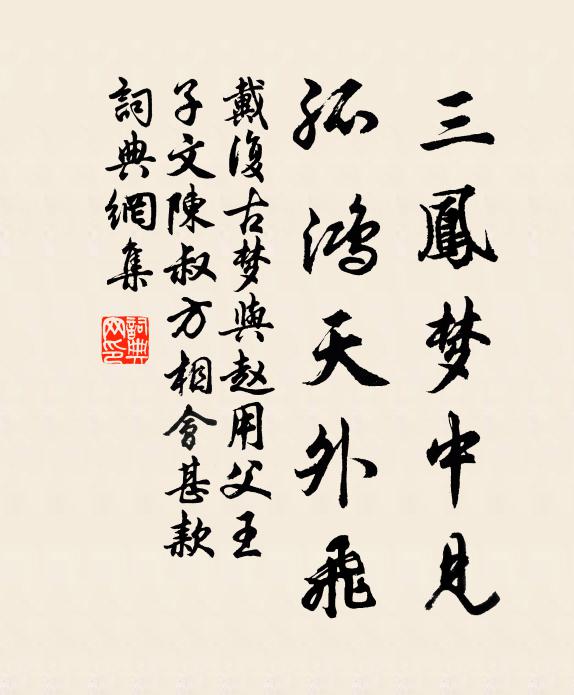 三鳳梦中見
孤鴻天外飛
戴復古梦與赵用父王
子文陳叔方相會甚款
詞典網集
詞典网印